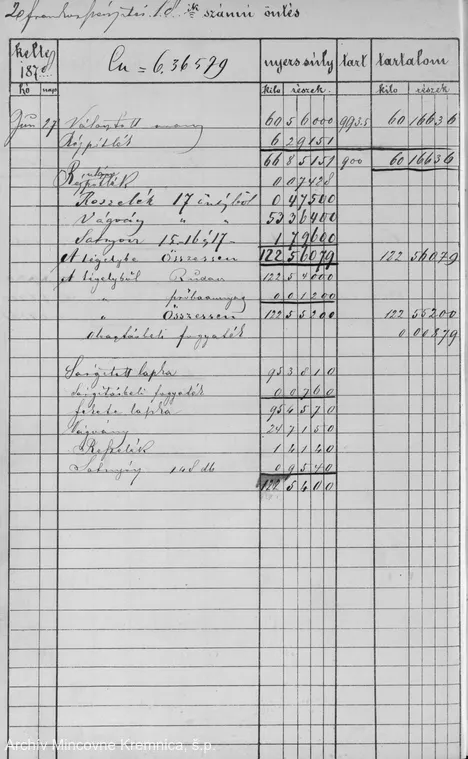 20 frankos 18 ik számú öntés
kelte 187 Cu = 6.36579 nyers súly tart tartalom
hó nap kilo részek. kilo részek
Jun 27 Választott arany 60 56000 993.5 60 16636
Rézpótlék 6 29151
66 85151 900 60 16636
Rézpótlék 0 07428
Reszelék 17 öntésből 0 47500
Vágvány " " 53 36400
Selejt 15-16 és 17 1 79600
A tégelybe Összessen 122 56079 122 56079
A tégelyből Rudan 122 54000
" próbaanyag 0 01200
" Összessen 122 55200 122 55200
olvasztásbeli fogyaték 0 00879
lapka 95 3810
fogyaték 0 0760
fekete lapka 95 4570
Vágvány 24 7150
Reszelék 1 4140
148 db 0 9540
122 5400
Archív Mincovne Kremnica, š.p.